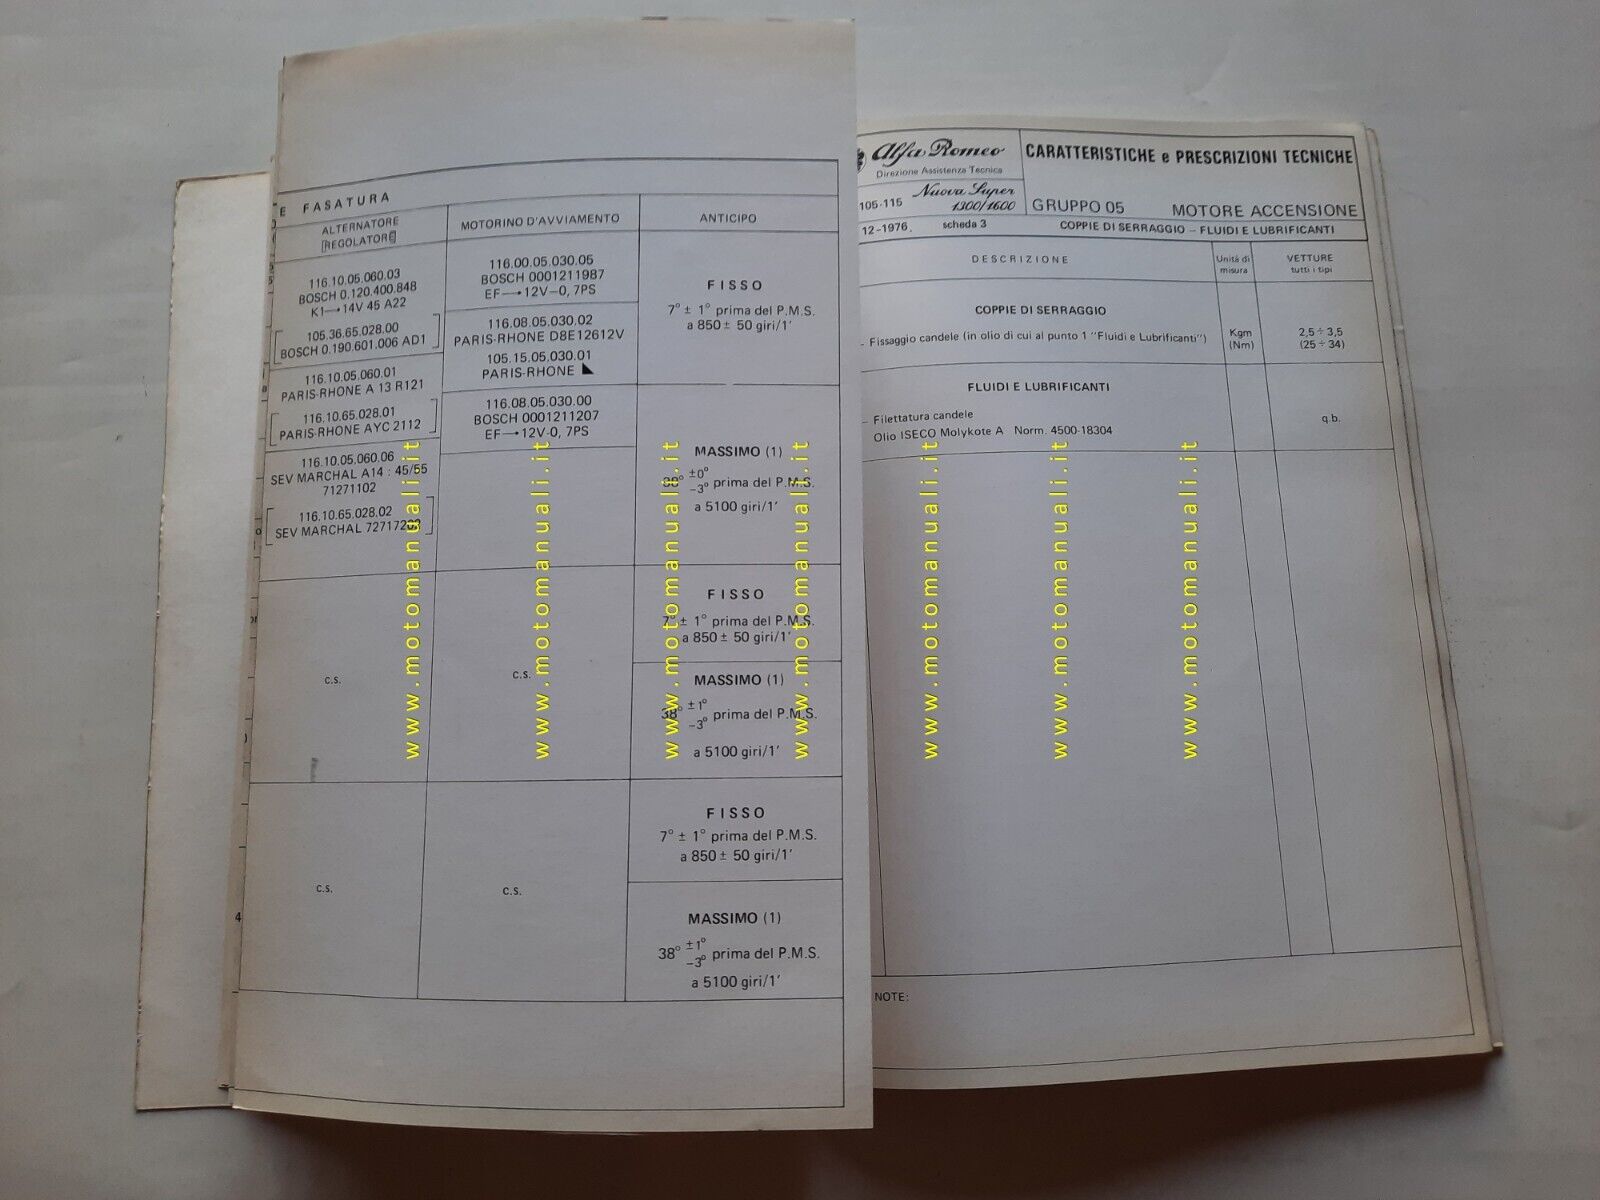 E FASATURA
ALTERNATORE
[REGOLATORE]
MOTORINO D'AVVIAMENTO
ANTICIPO
116.10.05.060.03
BOSCH 0.120.400.848
K1→14V 45 A22
105.36.65.028.00
BOSCH 0.190.601.006 AD1
116.10.05.060.01
PARIS-RHONE A 13 R121
116.10.65.028.01
PARIS-RHONE AYC 2112
116.10.05.060.06
SEV MARCHAL A14 : 45/55
71271102
116.10.65.028.02
SEV MARCHAL
116.00.05.030.05
BOSCH 0001211987
EF→12V-0, 7PS
116.08.05.030.02
PARIS-RHONE D8E12612V
105.15.05.030.01
PARIS-RHONE ◣
116.08.05.030.00
BOSCH 0001211207
EF→12V-0, 7PS
FISSO
7° ± 1° prima del P.M.S.
a 850 ± 50 giri/1'
MASSIMO (1)
38° ±0° -3° prima del P.M.S.
a 5100 giri/1'
c.s.
c.s.
FISSO
7° ± 1° prima del P.M.S.
a 850 ± 50 giri/1'
MASSIMO (1)
38° ±1° -3° prima del P.M.S.
a 5100 giri/1'
c.s.
c.s.
FISSO
7° ± 1° prima del P.M.S.
a 850 ± 50 giri/1'
MASSIMO (1)
38° ±1° -3° prima del P.M.S.
a 5100 giri/1'
4
Alfa Romeo
Direzione Assistenza Tecnica
CARATTERISTICHE e PRESCRIZIONI TECNICHE
105-115
Nuova Super
1300/1600
GRUPPO 05 MOTORE ACCENSIONE
12-1976. scheda 3
COPPIE DI SERRAGGIO - FLUIDI E LUBRIFICANTI
DESCRIZIONE
Unità di
misura
VETTURE
tutti i tipi
COPPIE DI SERRAGGIO
- Fissaggio candele (in olio di cui al punto 1 "Fluidi e Lubrificanti")
Kgm
(Nm)
2,5 ÷ 3,5
(25 ÷ 34)
FLUIDI E LUBRIFICANTI
- Filettatura candele
Olio ISECO Molykote A Norm. 4500-18304
q.b.
NOTE:
www.motomanuali.it
www.motomanuali.it
www.motomanuali.it
www.motomanuali.it
www.motomanuali.it
www.motomanuali.it
www.motomanuali.it